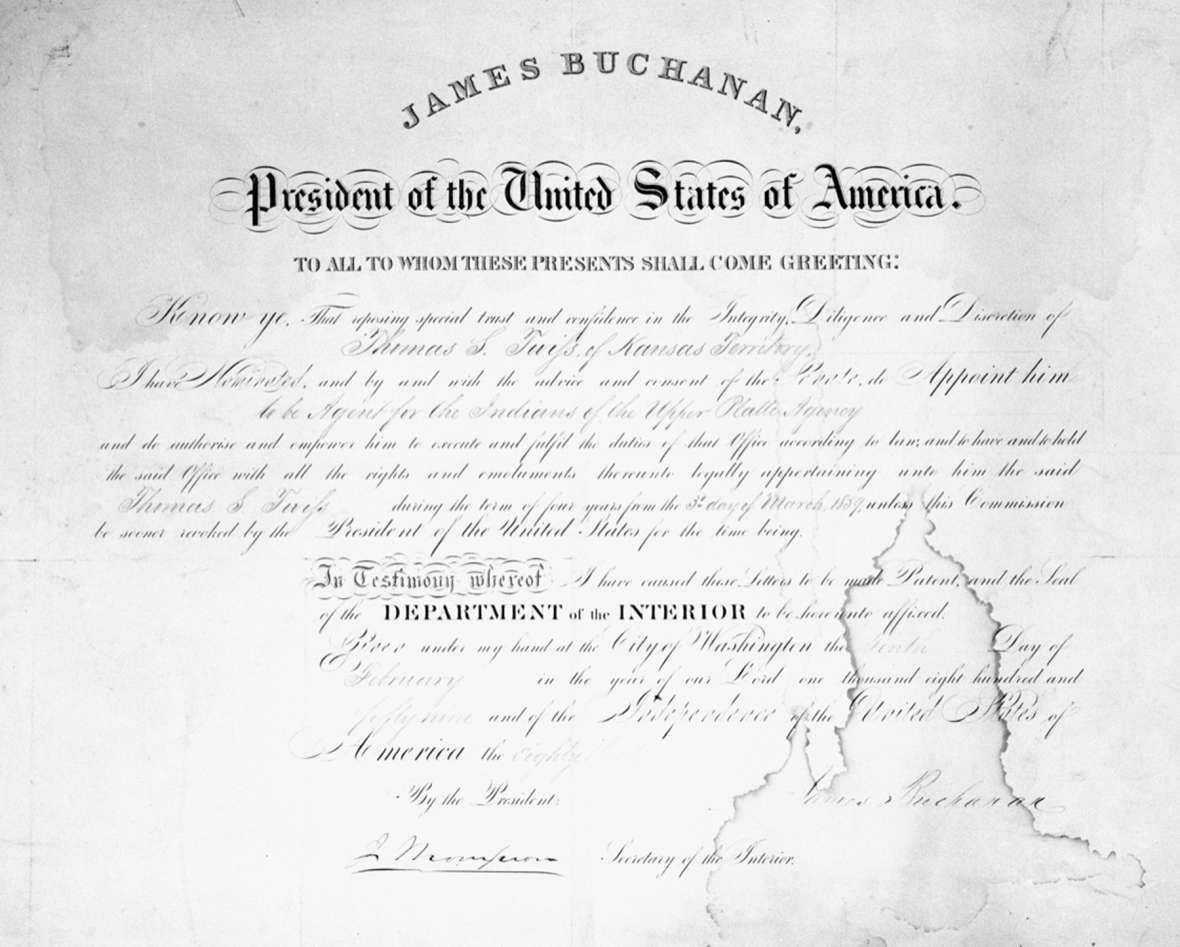 JAMES BUCHANAN,
President of the United States of America.
TO ALL TO WHOM THESE PRESENTS SHALL COME GREETING:
Know ye, That reposing special trust and confidence in the Integrity, Diligence and Discretion of
Thomas S. Twiss, of Kansas Territory,
I have Nominated, and by and with the advice and consent of the Senate, do Appoint him
to be Agent for the Indians of the Upper Platte Agency
and do authorise and empower him to execute and fulfil the duties of that Office according to law; and to have and to hold
the said Office with all the rights and emoluments thereunto legally appertaining unto him the said
Thomas S. Twiss during the term of four years from the 3d day of March, 1859, unless this Commission
be sooner revoked by the President of the United States for the time being.
In Testimony whereof I have caused these Letters to be made Patent, and the Seal
of the DEPARTMENT of the INTERIOR to be hereunto affixed.
Given under my hand at the City of Washington the Tenth Day of
February in the year of our Lord one thousand eight hundred and
fifty nine and of the Independence of the United States of
America the Eighty
By the President: James Buchanan
J Thompson Secretary of the Interior.